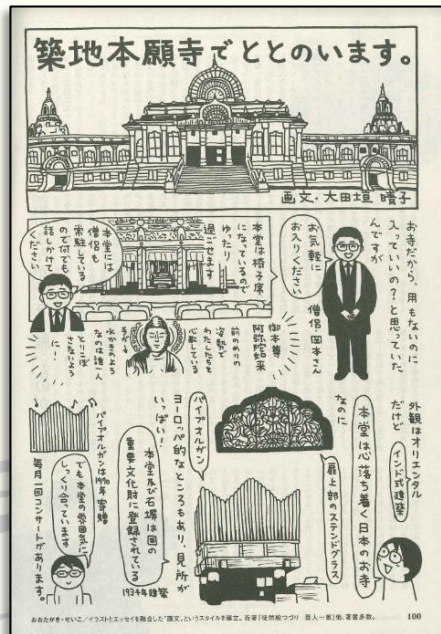 築地本願寺でととのいます。
画文・大田垣晴子
お寺だから、用もないのに
入っていいの?と思っていた
んですが
お気軽に
お入りください
僧侶・岡本さん
本堂は椅子席
になっているので
ゆったり
過ごせます
本堂には
僧侶も
常駐している
ので何でも
話しかけて
ください
御本尊
阿弥陀如来
前のめりの
姿勢で
わたしたちを
心配している
手が→
水かきのよう
なのは誰一人
とりこぼ
さないよう
に!
外観はオリエンタル
だけど
インド式建築
本堂は心落ち着く日本のお寺
なのに
扉上部のステンドグラス
パイプオルガン
ヨーロッパ的なところもあり、見所が
いっぱい!
本堂及び石塀は国の
重要文化財に登録されている
1934年建築
パイプオルガンは1970年寄贈
でも本堂の雰囲気に
しっくり合っています
毎月一回コンサートがあります。
おおたがき・せいこ/イラストとエッセイを融合した“画文”というスタイルを確立。近著『徒然絵つづり 百人一首』他、著書多数。
100